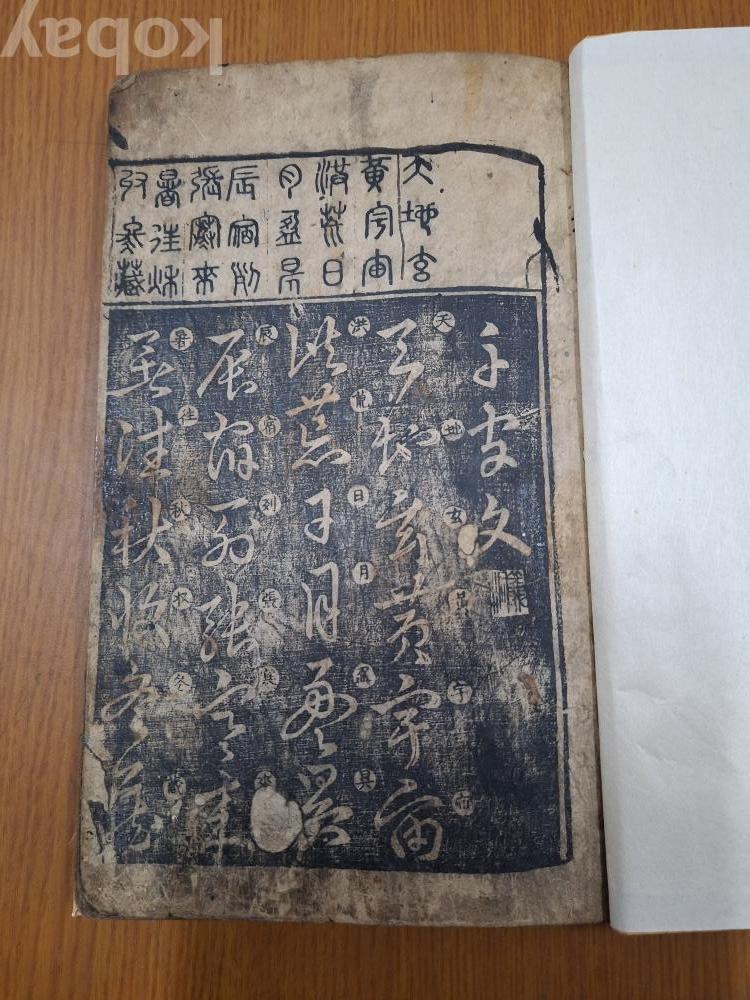 kobay
天地玄
黃宇宙
洪荒日
月盈昃
辰宿列
張寒來
暑往秋
收冬藏
千字文
天地玄黃宇宙
天地玄黃宇宙
洪荒日月盈昃
洪荒日月盈昃
辰宿列張寒來
辰宿列張寒來
暑往秋收冬藏
暑往秋收冬藏